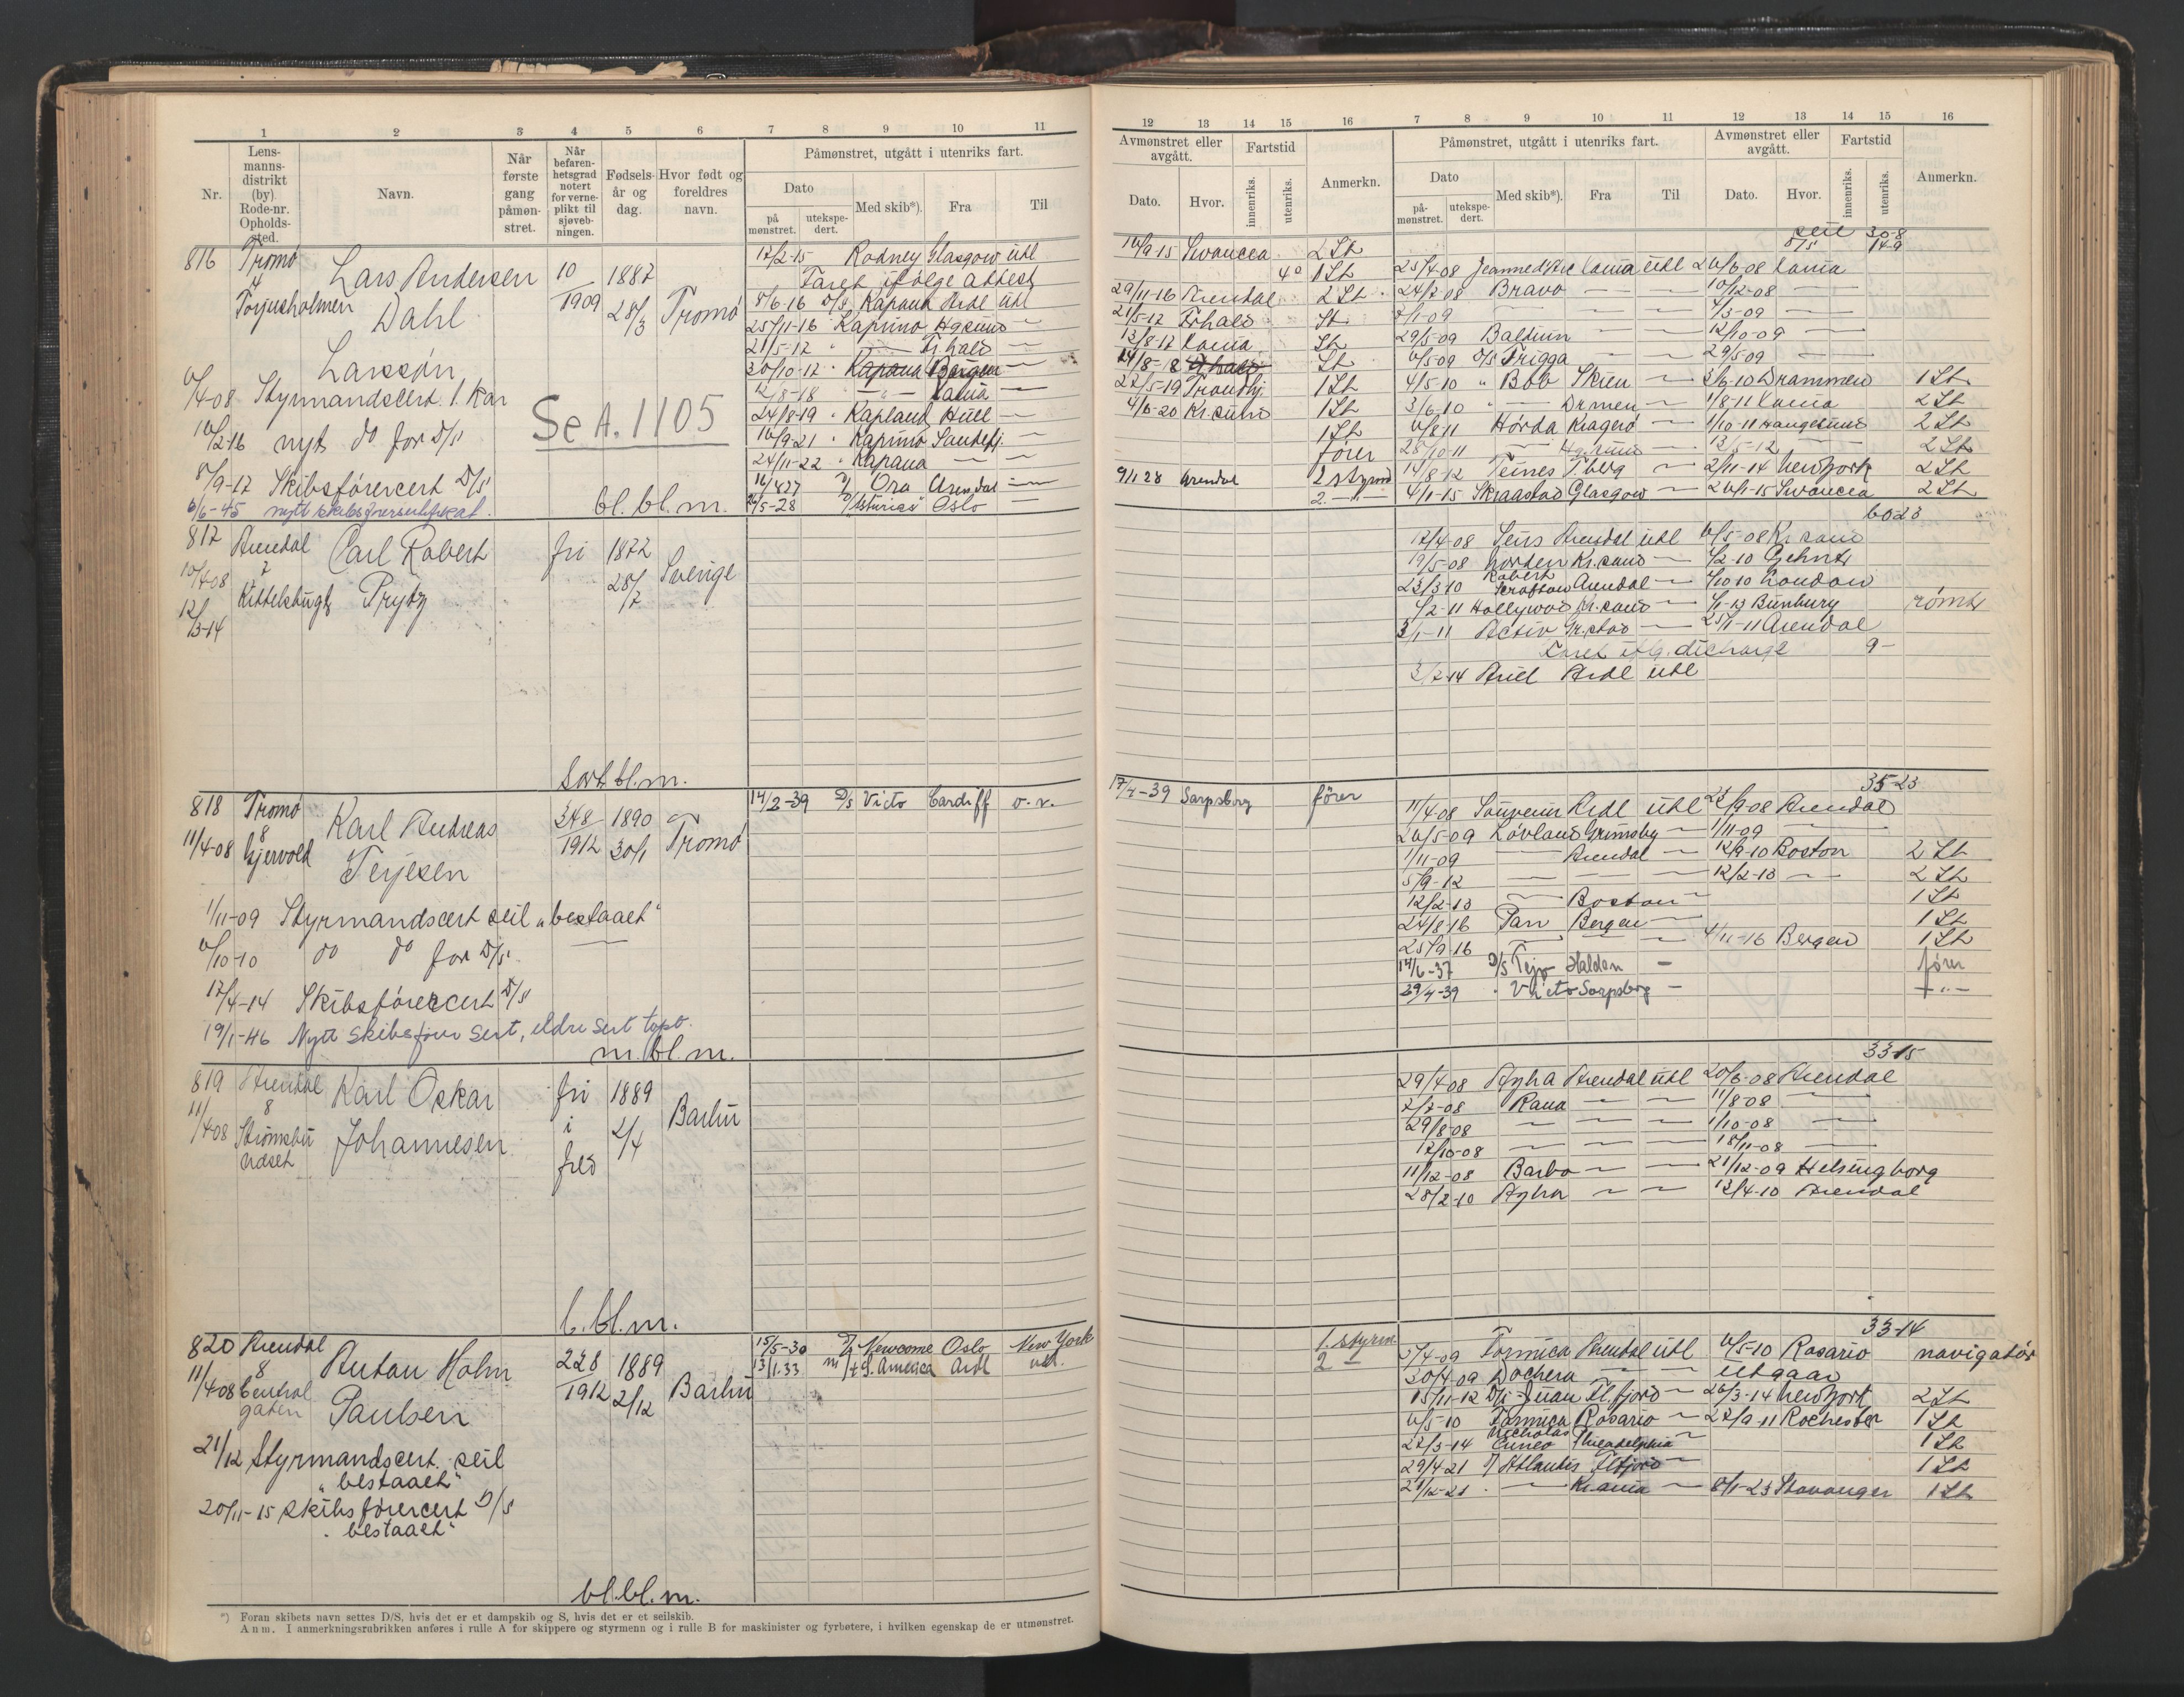 1 2 3 4 5 6 7 8 9 10 11
Nr.
Lensmannsdistrikt (by) Rode-nr. Opholdssted.
Navn.
Når første gang påmønstret.
Når befarenhetsgrad notert for verneplikt til sjøvebningen.
Fødselsår og dag.
Hvor født og foreldres navn.
Påmønstret, utgått i utenriks fart.
Dato
på mønstret.
utekspedert.
Med skib*).
Fra
Til
816 Tromø 4 Torjusholmen
Lars Andersen
Dahl
Larssøn
10/1909
1887 28/3
Tromø
6/4-08 Styrmandscert. 1. Kar
10/2-16 nyt do for D/S
8/9-17 Skibsførercert D/S
6/6-45 nytt skibsførersertifikat.
Se A. 1105
bl. bl. m.
17/2-15 Rodney Glasgow utl
Faret ifølge attest
8/6-16 D/S Kapana Ardl utl
25/11-16 Kaprino Hgsund —
21/5-17 " — Fr.hald —
30/10-17 " Kapana Bergen —
12/8-18 — " — Xania —
24/8-19 " Kapland Hull —
10/9-21 " Kaprino Sandefj. —
24/11-22 " Kapana — —
16/4 27 D/S Ora Arendal —
D/S Asturias Oslo
817 Arendal 7 Kittelsbugt
10/4-08
12/3-14
Carl Robert
Prytz
fri
1872 28/7
Sverige
Sort bl. m.
818 Tromø 8 Gjervold
11/4-08
Karl Andreas
Terjesen
348/1912
1890 30/1
Tromø
14/2-39 D/S Victo Cardiff o.v.
1/11-09 Styrmandscert seil „bestaaet"
6/10-10 do do for D/S.
17/4-14 Skibsførercert D/S
19/1-46 Nytt skibsfører sert, eldre sert tapt.
m. bl. m.
819 Arendal 8 Strømsbu
11/4-08
Karl Oskar
Johannesen
fri i fred
1889 2/4
Barbu
b. bl. m.
820 Arendal 8 Centralgaten
11/4-08
Anton Holm
Paulsen
228/1912
1889 2/12
Barbu
15/5-30 Newcome Oslo New York
13/1.33 m/t S. America Ardl utl.
21/12 Styrmandscert. seil
„bestaaet"
20/11-15 Skibsførercert D/S
„bestaaet"
bl. bl. m.
*) Foran skibets navn settes D/S, hvis det er et dampskib og S, hvis det er et seilskib.
Anm. I anmerkningsrubrikken anføres i rulle A for skippere og styrmenn og i rulle B for maskinister og fyrbøtere, i hvilken egenskap de er utmønstret.
12 13 14 15 16 7 8 9 10 11 12 13 14 15 16
Avmønstret eller avgått.
Fartstid
Anmerkn.
Påmønstret, utgått i utenriks fart.
Avmønstret eller avgått.
Fartstid
Anmerkn.
Dato.
Hvor.
innenriks.
utenriks.
Dato
påmønstret.
utekspedert.
Med skib*).
Fra
Til
Dato.
Hvor.
innenriks.
utenriks.
seil 30-8
D/S 14-9
10/9 15 Swancea 2 St
4° 1 St
29/11-16 Arendal 2 St
21/5-17 Frhald St
12/8-17 Xania St
St
27/5-19 Trondhj. 1 St
4/6-20 Kr.sund 1 St
1 St
fører
9/1 28 Arendal 2 styrmd
2. — " —
25/4-08 Xania utl 26/6-08 Xania
24/7 08 Bravo — — 10/12-08 —
7/1-09 — — — 4/3-09 —
29/5-09 Baldium — — 12/10-09 —
6/5-09 D/S Frigga — — 29/5-09 —
4/5-10 " Bob Skien — 3/6-10 Drammen 1 St
3/6-10 " — Drmen — 1/8-11 Xania 2 St
6/8 11 Hørda Kragerø — 1/10-11 Haugesund 2 St
28/10-11 — Hgsund — 13/5-12 — 2 St
14/8-12 Teines T.berg — 2/11-14 New York 2 St
4/1-15 Skraastad Glasgow — 26/1-15 Swancea 2 St
60 23
17/4-08 Arendal utl 6/5-08 Kr.sand
19/5-08 Norden Kr.sand — 1/2-10 Gehnt
23/3 10 Robert Scrafton Arendal — 1/10 10 London
1/2-11 Hollywood Kr.sand — 1/1-13 Bunbury rømt
3/1-11 Activ Gr.stad — 25/1-11 Arendal
Faret iflg. discharge 9-
3/2-14 Ariel Ardl utl
35-23
17/4-39 Sarpsborg fører
11/4-08 Souvenir Ardl utl 22/9-08 Arendal
26/5-09 Løvland Grimsby — 1/11-09 —
1/11-09 — Arendal — 12/9-10 Boston 2 St
5/9-12 — — — 12/2-13 — 2 St
12/2-13 — Boston — 1 St
24/8-16 Pan Bergen — 1 St
25/9-16 — — — 4/11-16 Bergen 1 St
14/6-37 D/S Tejo Halden — fører
29/4-39 " Victo Sarpsborg — — " —
33-15
29/4-08 Agha Arendal utl 20/6-08 Arendal
2/7-08 Rana — — 11/8-08 —
29/8-08 — — — 1/10-08 —
17/10-08 — — — 18/11-08 —
11/12-08 Barbo — — 21/12-09 Helsingborg
28/2-10 Agha — — 12/4-10 Arendal
33-14
1. styrm.
2 —
5/4-09 Formica Arendal utl 6/5-10 Rosario navigatør
30/4-09 Dochera — — utgaar
15/11-12 D/S Juan Flfjord — 26/3-14 New York 2 St
6/5-10 Formica Rosario — 22/9-11 Rochester 1 St
27/3-14 Nicholas Cuneo Philadelphia — 1 St
29/4-21 Atlantis Flfjord — 1 St
21/12-21 " — Kr.ania — 8/1-23 Stavanger 1 St